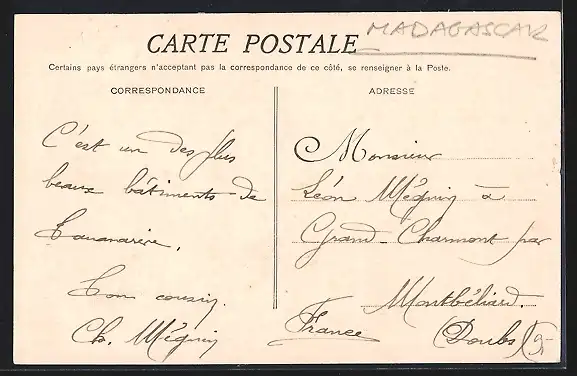 MADAGASCAR
CARTE POSTALE
Certains pays étrangers n'acceptant pas la correspondance de ce côté, se renseigner à la Poste.
CORRESPONDANCE
C'est un des plus
beaux bâtiments de
Tananarive.
Ton cousin.
Ch. Méquin
ADRESSE
Monsieur
Léon Méquin à
Grand-Charmont par
Montbéliard.
(Doubs)
France